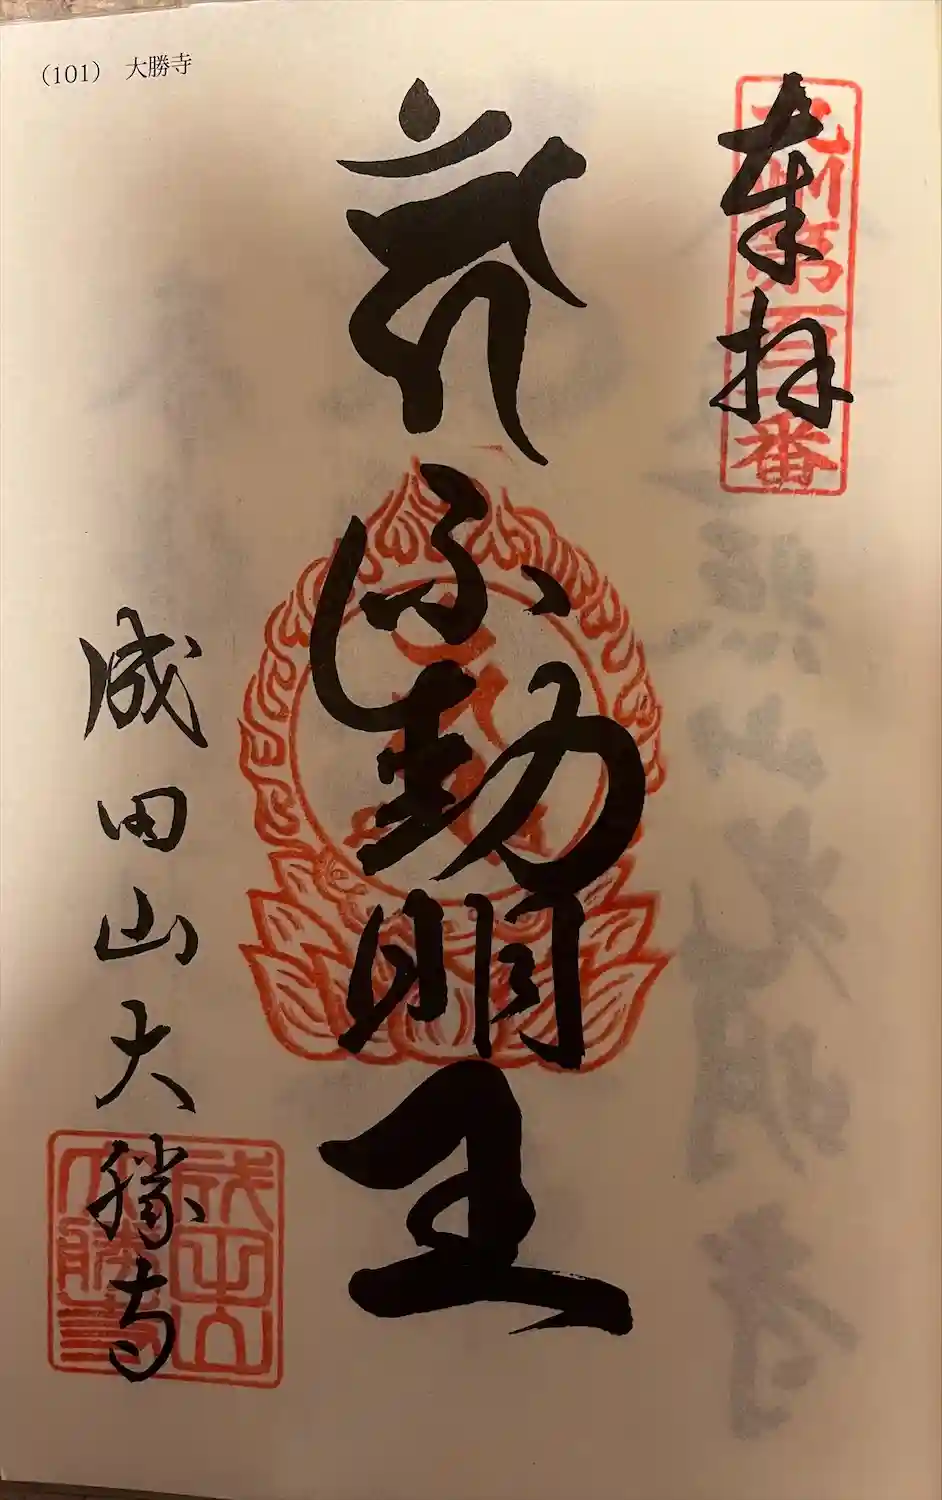 （101）　大勝寺
奉拝
九州第百一番
不動明王
成田山大勝寺
成田山
大勝寺